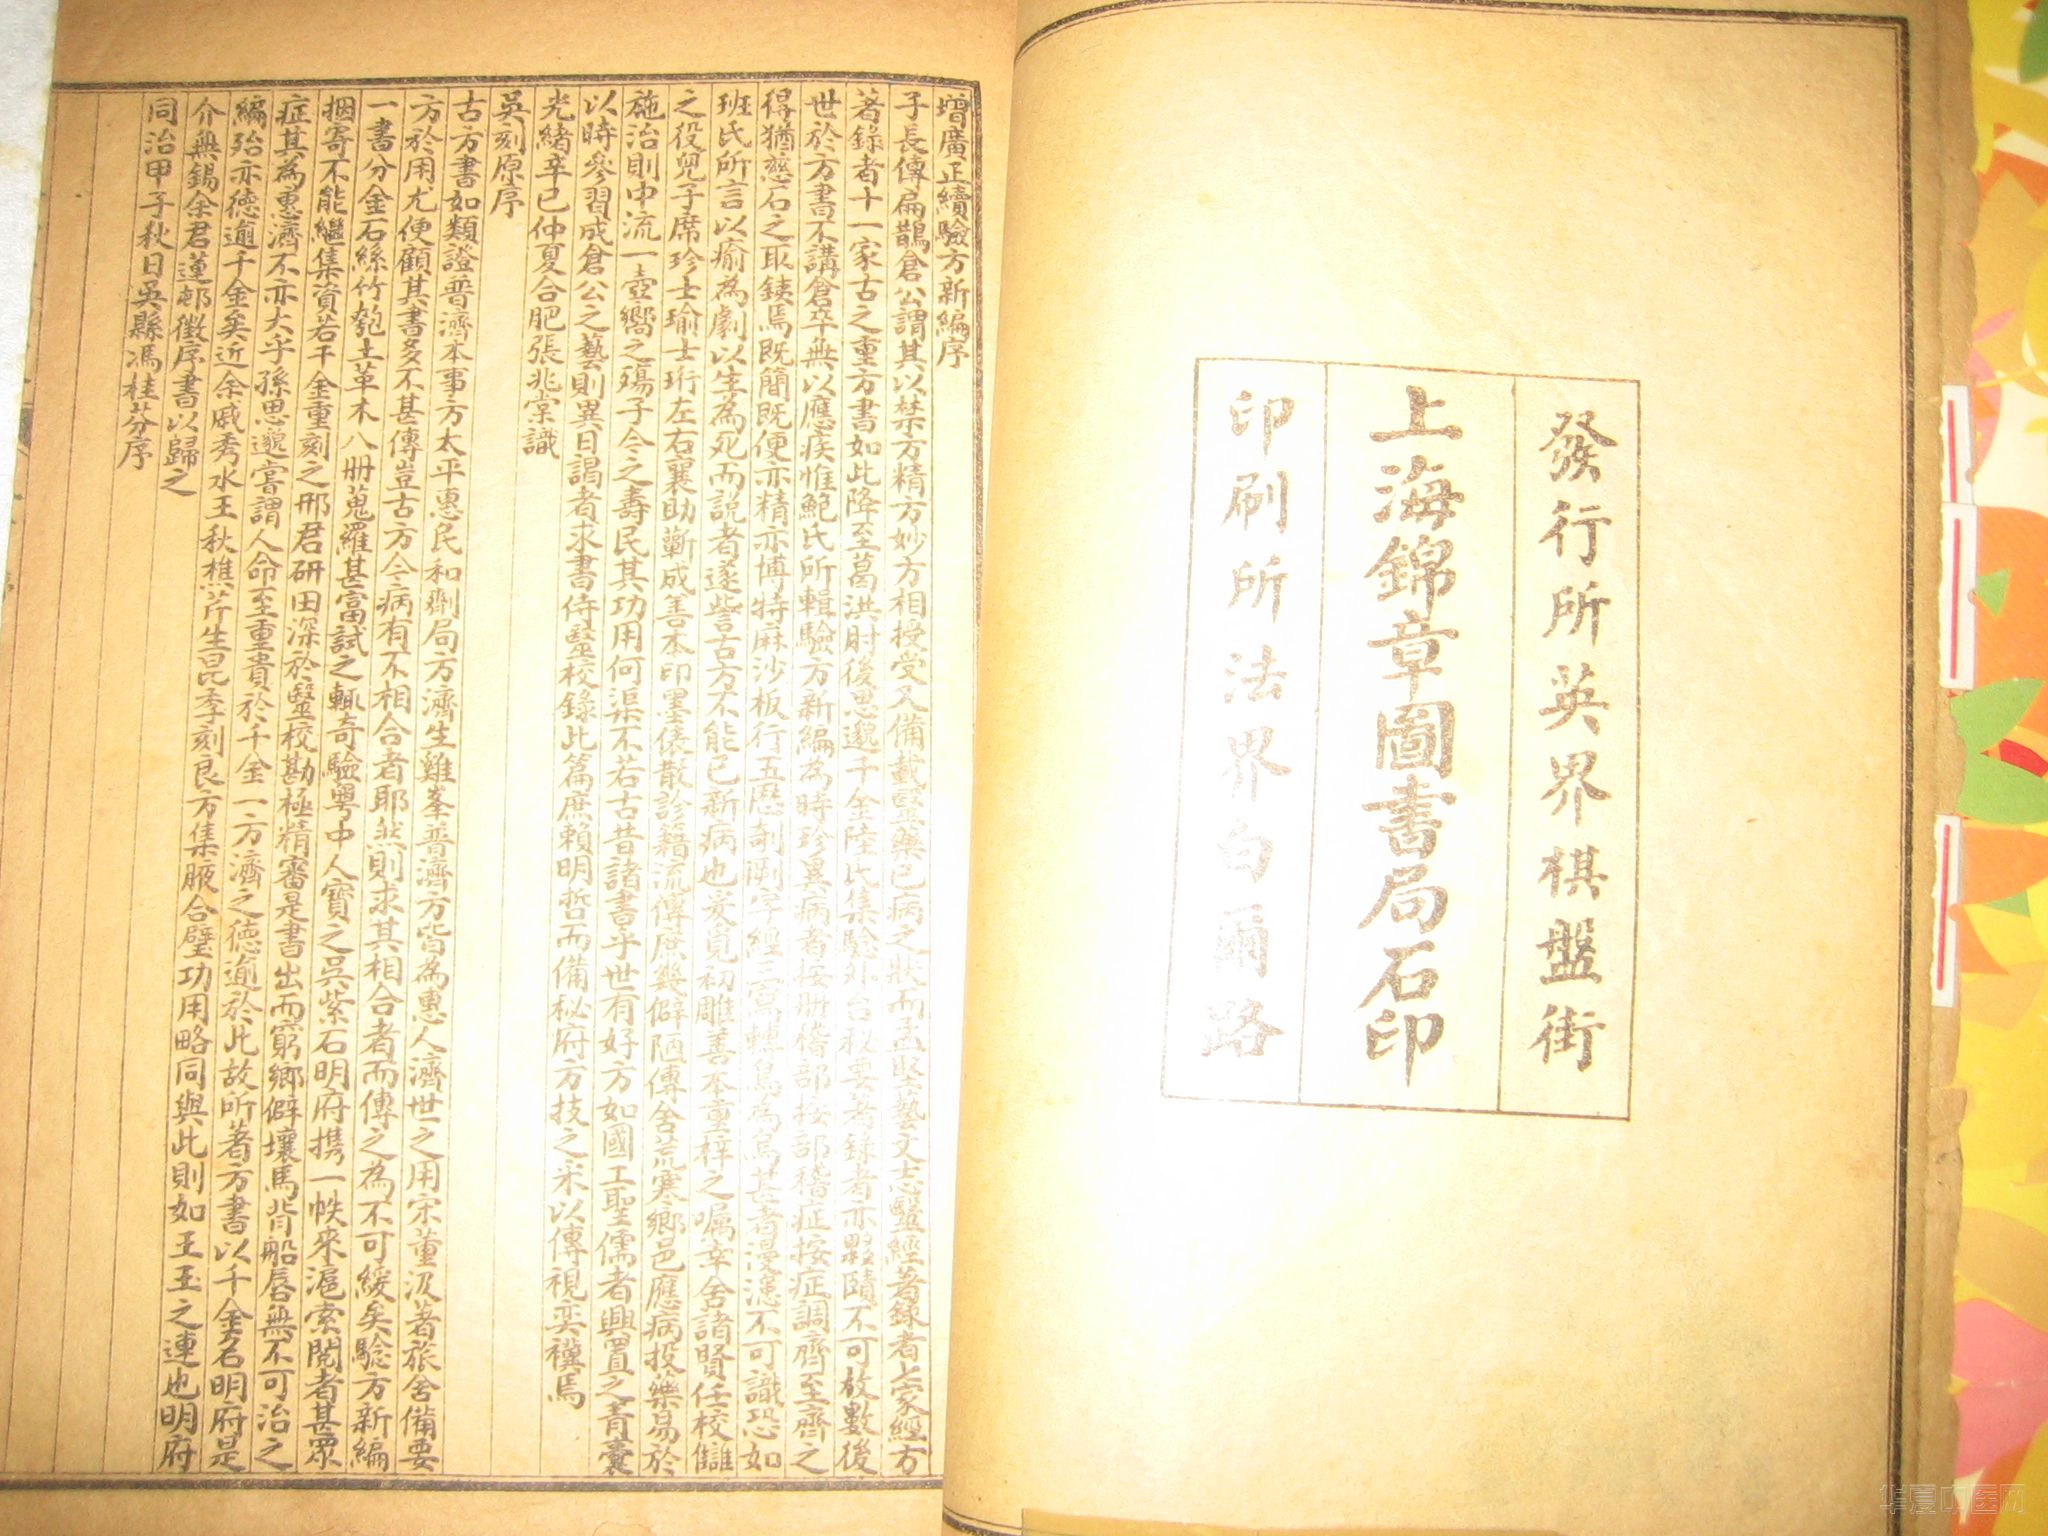 發行所英界棋盤街
上海錦章圖書局石印
印刷所法界白爾路
增廣正續驗方新編序
子長傳扁鵲倉公謂其以禁方精方妙方相授受又備載醫藥已病之狀而孟堅藝文志醫經著錄者七家經方
著錄者十一家古之重方書如此降至葛洪肘後思邈千金陸氏集驗外台秘要著錄者亦夥賾不可放數後
世於方書不講倉卒無以應疾惟鮑氏所輯驗方新編為時珍異病者按冊稽部按部稽症按症調齊至齊之
得猶慈石之取鐵焉既簡既便亦精亦博特麻沙板行五愿剞劂字經三寫轉烏為焉甚者漫漶不可識恐如
班氏所言以瘉為劇以生為死而說者遂訾古方不能已新病也爰覓初雕善本重梓之囑幸舍諸賢任校讎
之役兒子席珍士瑜士珩左右襄助蘄成善本印墨俵散診籍流傳庶幾僻陋傳舍荒寒鄉邑應病投藥易於
施治則中流一壺嚮之殤子今之壽民其功用何渠不若古昔諸書乎世有好方如國工聖儒者興置之青囊
以時參習成倉公之藝則異日謁者求書侍醫校錄此篇庶賴明哲而備秘府方技之采以傳視奕禩焉
光緒辛巳仲夏合肥張兆棠識
吳刻原序
古方書如類證普濟本事方太平惠民和劑局方濟生雞峯普濟方皆為惠人濟世之用宋董汲著旅舍備要
方於用尤便顧其書多不甚傳豈古方今病有不相合者耶然則求其相合者而傳之為不可緩矣驗方新編
一書分金石絲竹匏土革木八冊蒐羅甚富試之輒奇驗粵中人寶之吳紫石明府攜一帙來滬索閱者甚眾
捆寄不能繼集資若干金重刻之邢君研田深於醫校勘極精審是書出而窮鄉僻壤馬背船唇無不可治之
症其為惠濟不亦大乎孫思邈嘗謂人命至重貴於千金一方濟之德逾於此故所著方書以千金名明府是
編殆亦德逾千金矣近余戚秀水王秋樵芹生昆季刻良方集腋合璧功用略同與此則如王玉之連也明府
介無錫余君蓮邨徵序書以歸之
同治甲子秋日吳縣馮桂芬序
华夏中医网